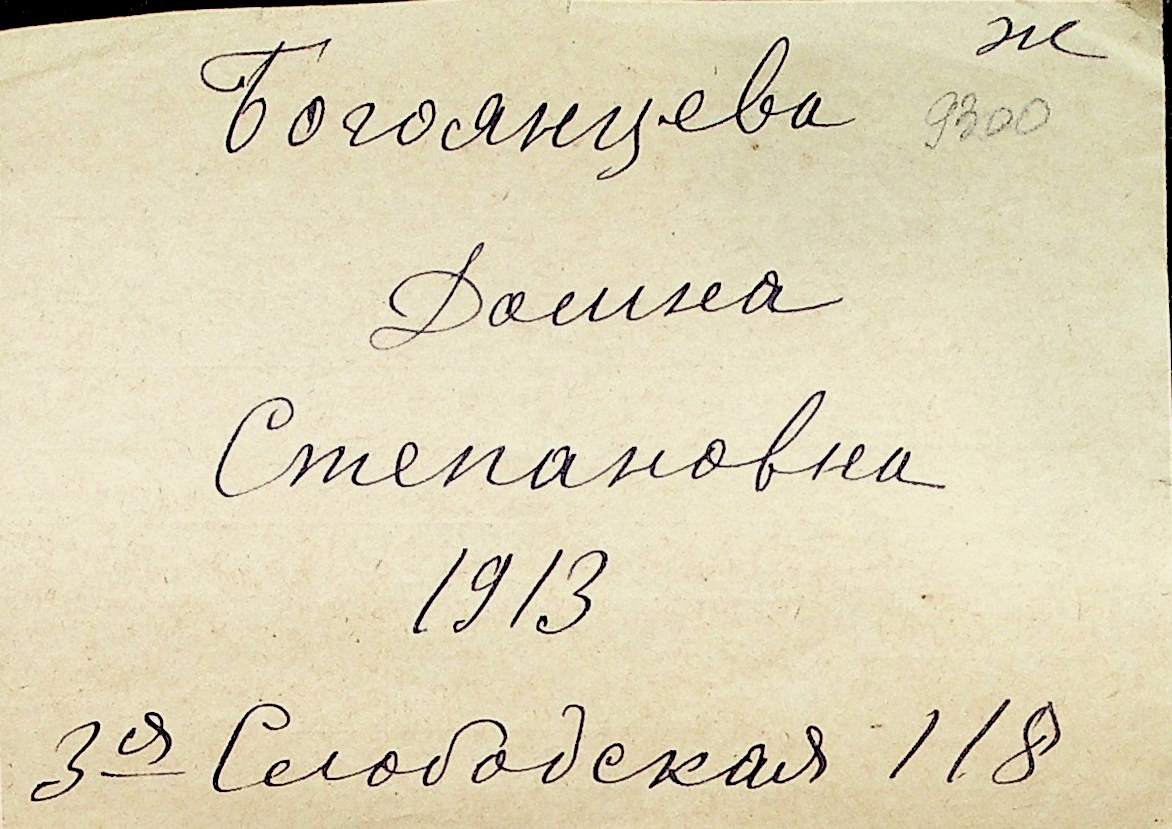 ж
Богоянцева 9300
Домна
Степановна
1913
3я Слободская 118